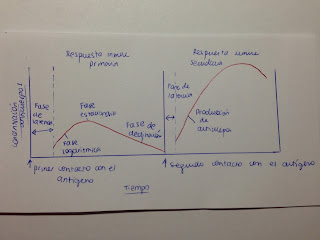 Respuesta inmune
primaria
Respuesta inmune
secundaria
concentración
anticuerpos
Fase
de
latencia
Fase
estacionaria
Fase
logarítmica
Fase de
declinación
Fase de
latencia
Producción
de
anticuerpos
primer contacto con el
antígeno
segundo contacto con el antígeno
Tiempo